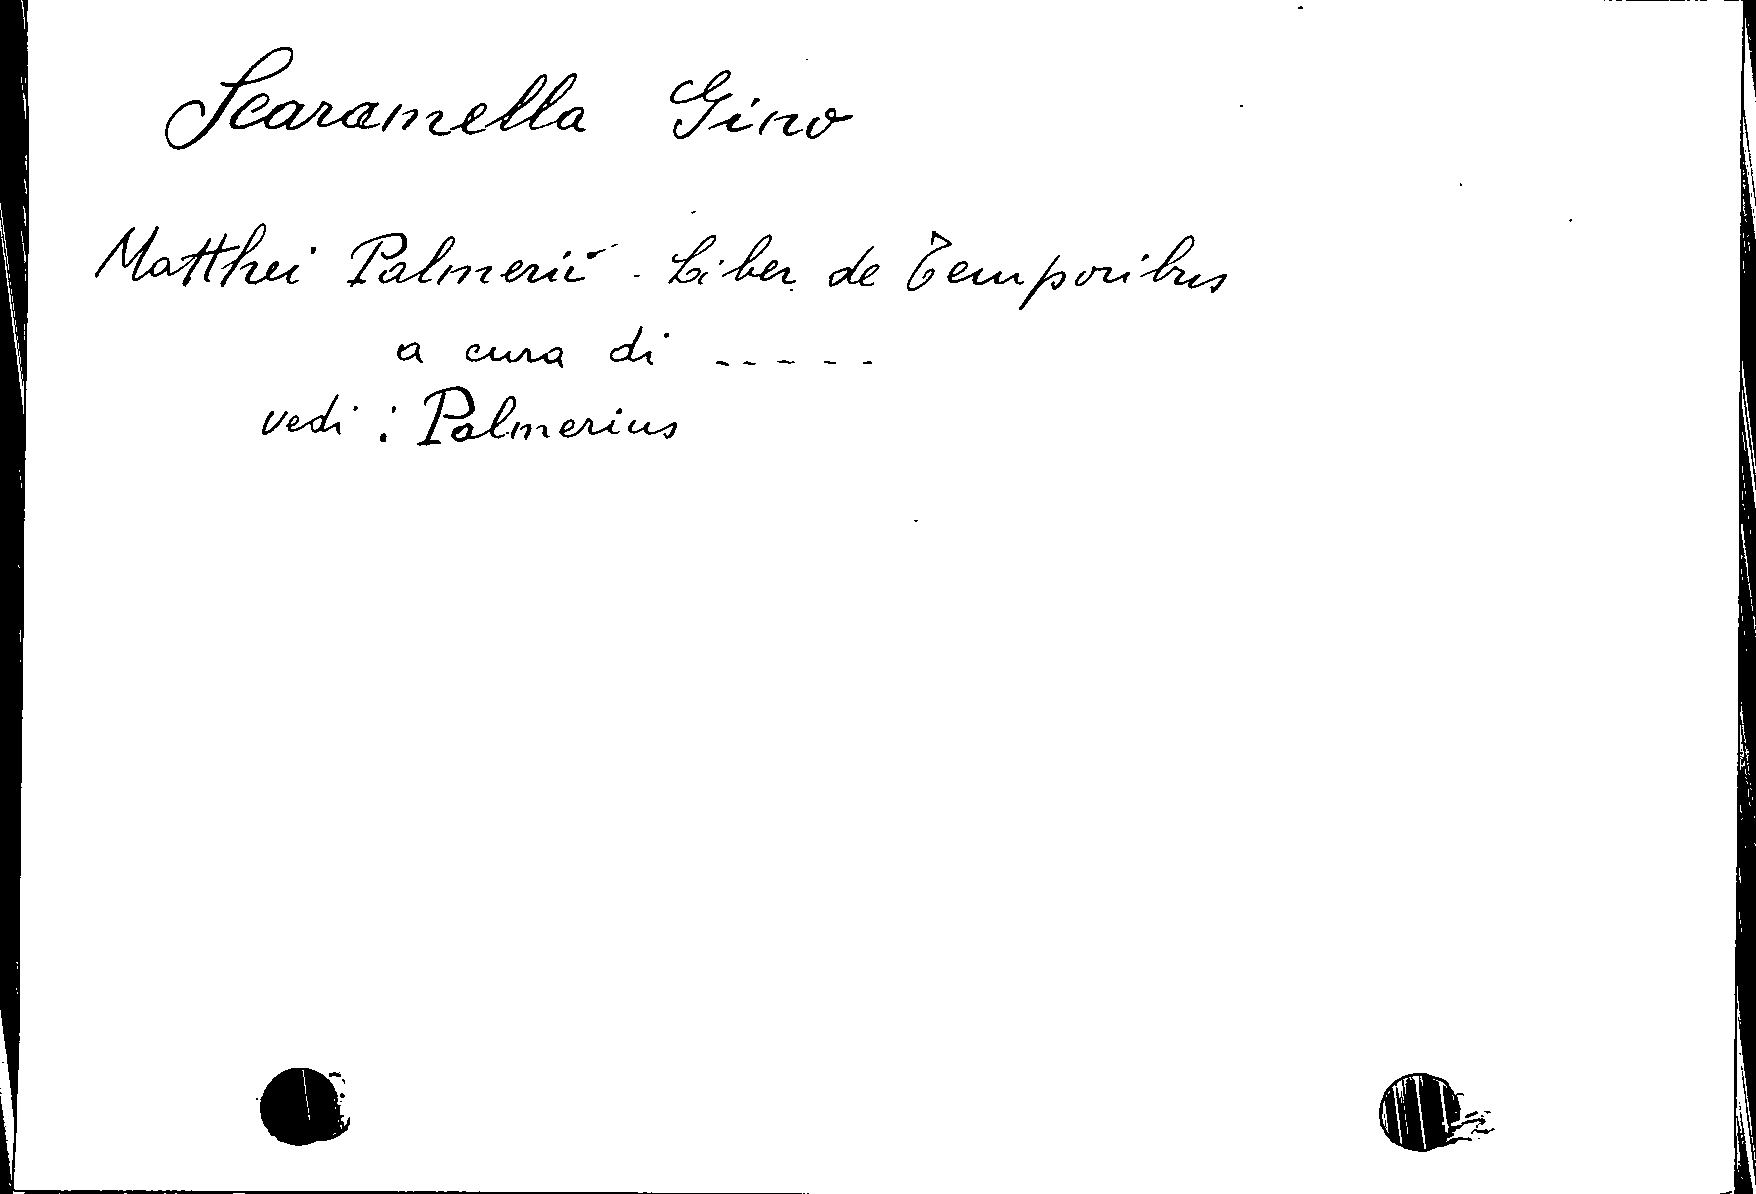 Scaramella Gino
Matthei Palmerii - Liber de Temporibus
a cura di -----
vedi : Palmerius